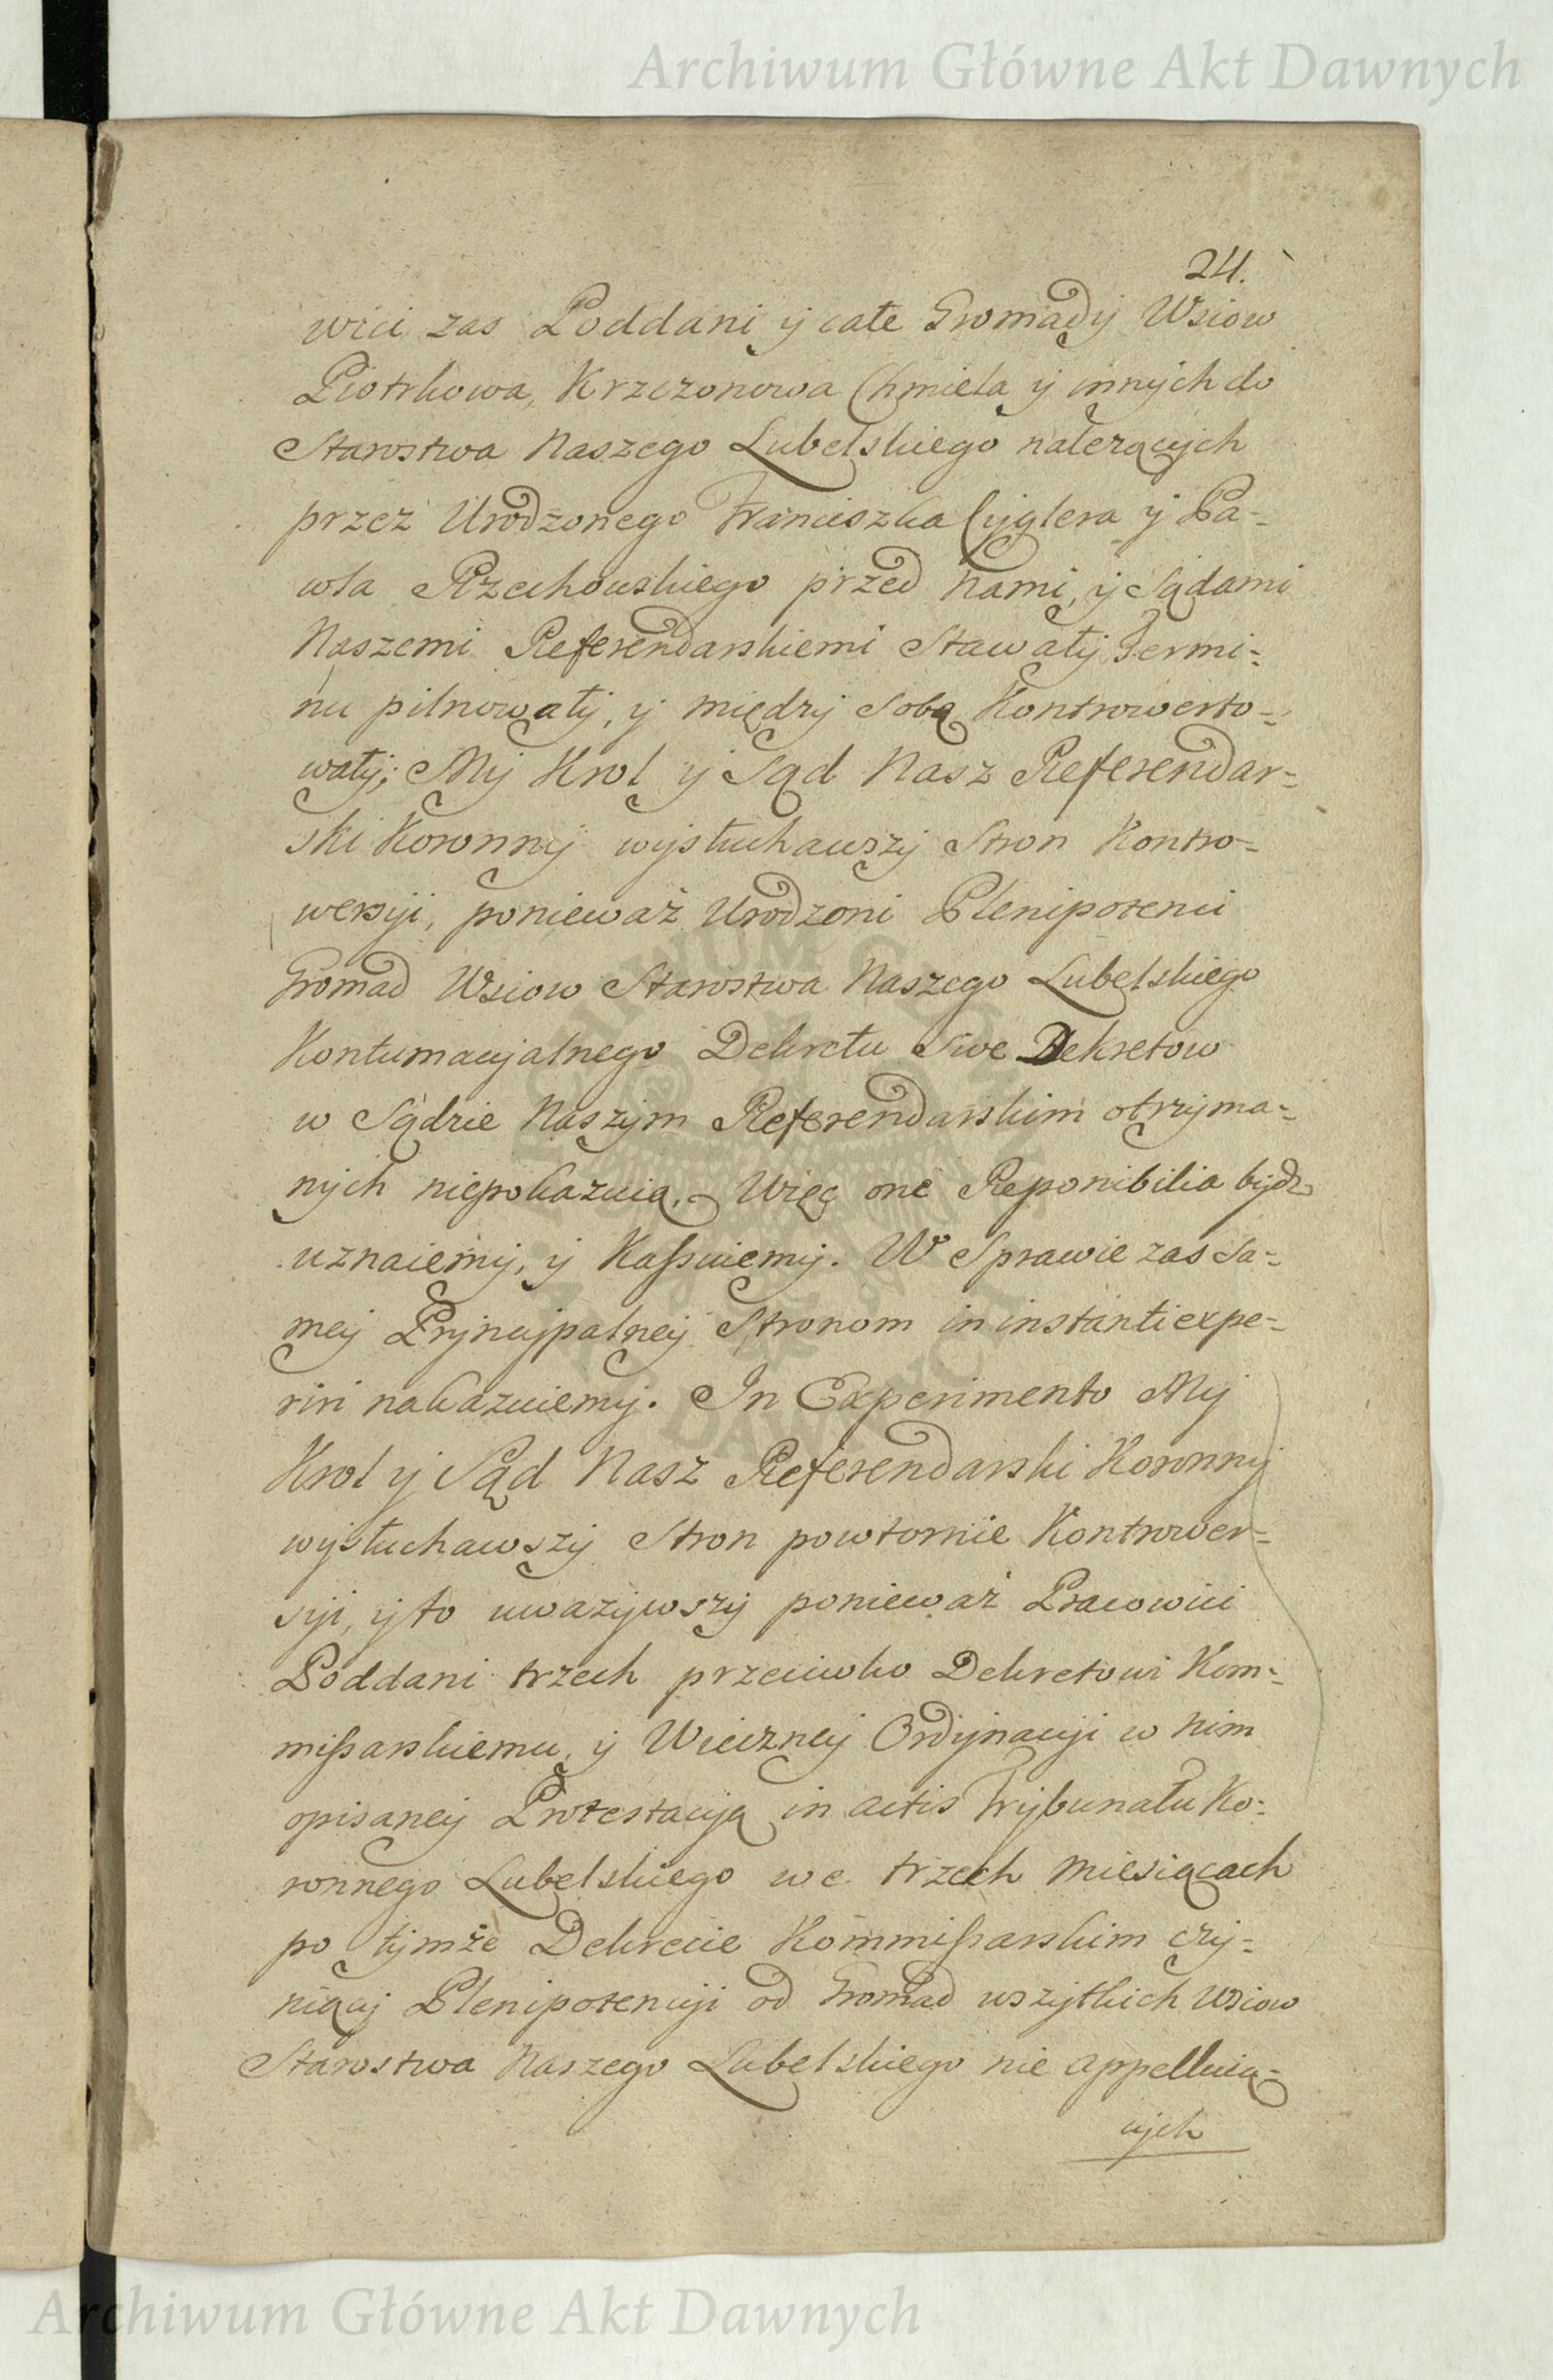 Archiwum Główne Akt Dawnych
24.
wici zas Poddani y całe Gromady Wsiow
Piotrkowa, Krzczonowa Chmiela y innych do
Starostwa Naszego Lubelskiego należących
przez Urodzonego Franciszka Cyglera y Pa-
wła Rzechowskiego przed Nami, y Sądami
Naszemi Referendarskiemi Stawały Termi-
nu pilnowały, y między Sobą Kontrowerto-
wały; My Krol y Sąd Nasz Referendar-
ski Koronny wysłuchawszy Stron Kontro-
wersyi, ponieważ Urodzoni Plenipotenci
Gromad Wsiow Starostwa Naszego Lubelskiego
Kontumacyalnego Dekretu Sive Dekretow
w Sądzie Naszym Referendarskim otrzyma-
nych niepokazuią, Więc one Reponibilia bydz
uznaiemy, y Kassuiemy. W Sprawie zas Sa-
mey Pryncypalney Stronom in instanti expe-
riri nakazuiemy. In Experimento My
Krol y Sąd Nasz Referendarski Koronny
wysłuchawszy Stron powtornie Kontrower-
syi, y to uważywszy ponieważ Pracowici
Poddani trzech przeciwko Dekretowi Kom-
missarskiemu, y Wieczney Ordynacyi w nim
opisaney Protestacyą in actis Trybunału Ko-
ronnego Lubelskiego we trzech Miesiącach
po tymże Dekrecie Kommissarskim czy-
niący Plenipotencyi od Gromad wszytkich Wsiow
Starostwa Naszego Lubelskiego nie appelluią-
cych
Archiwum Główne Akt Dawnych